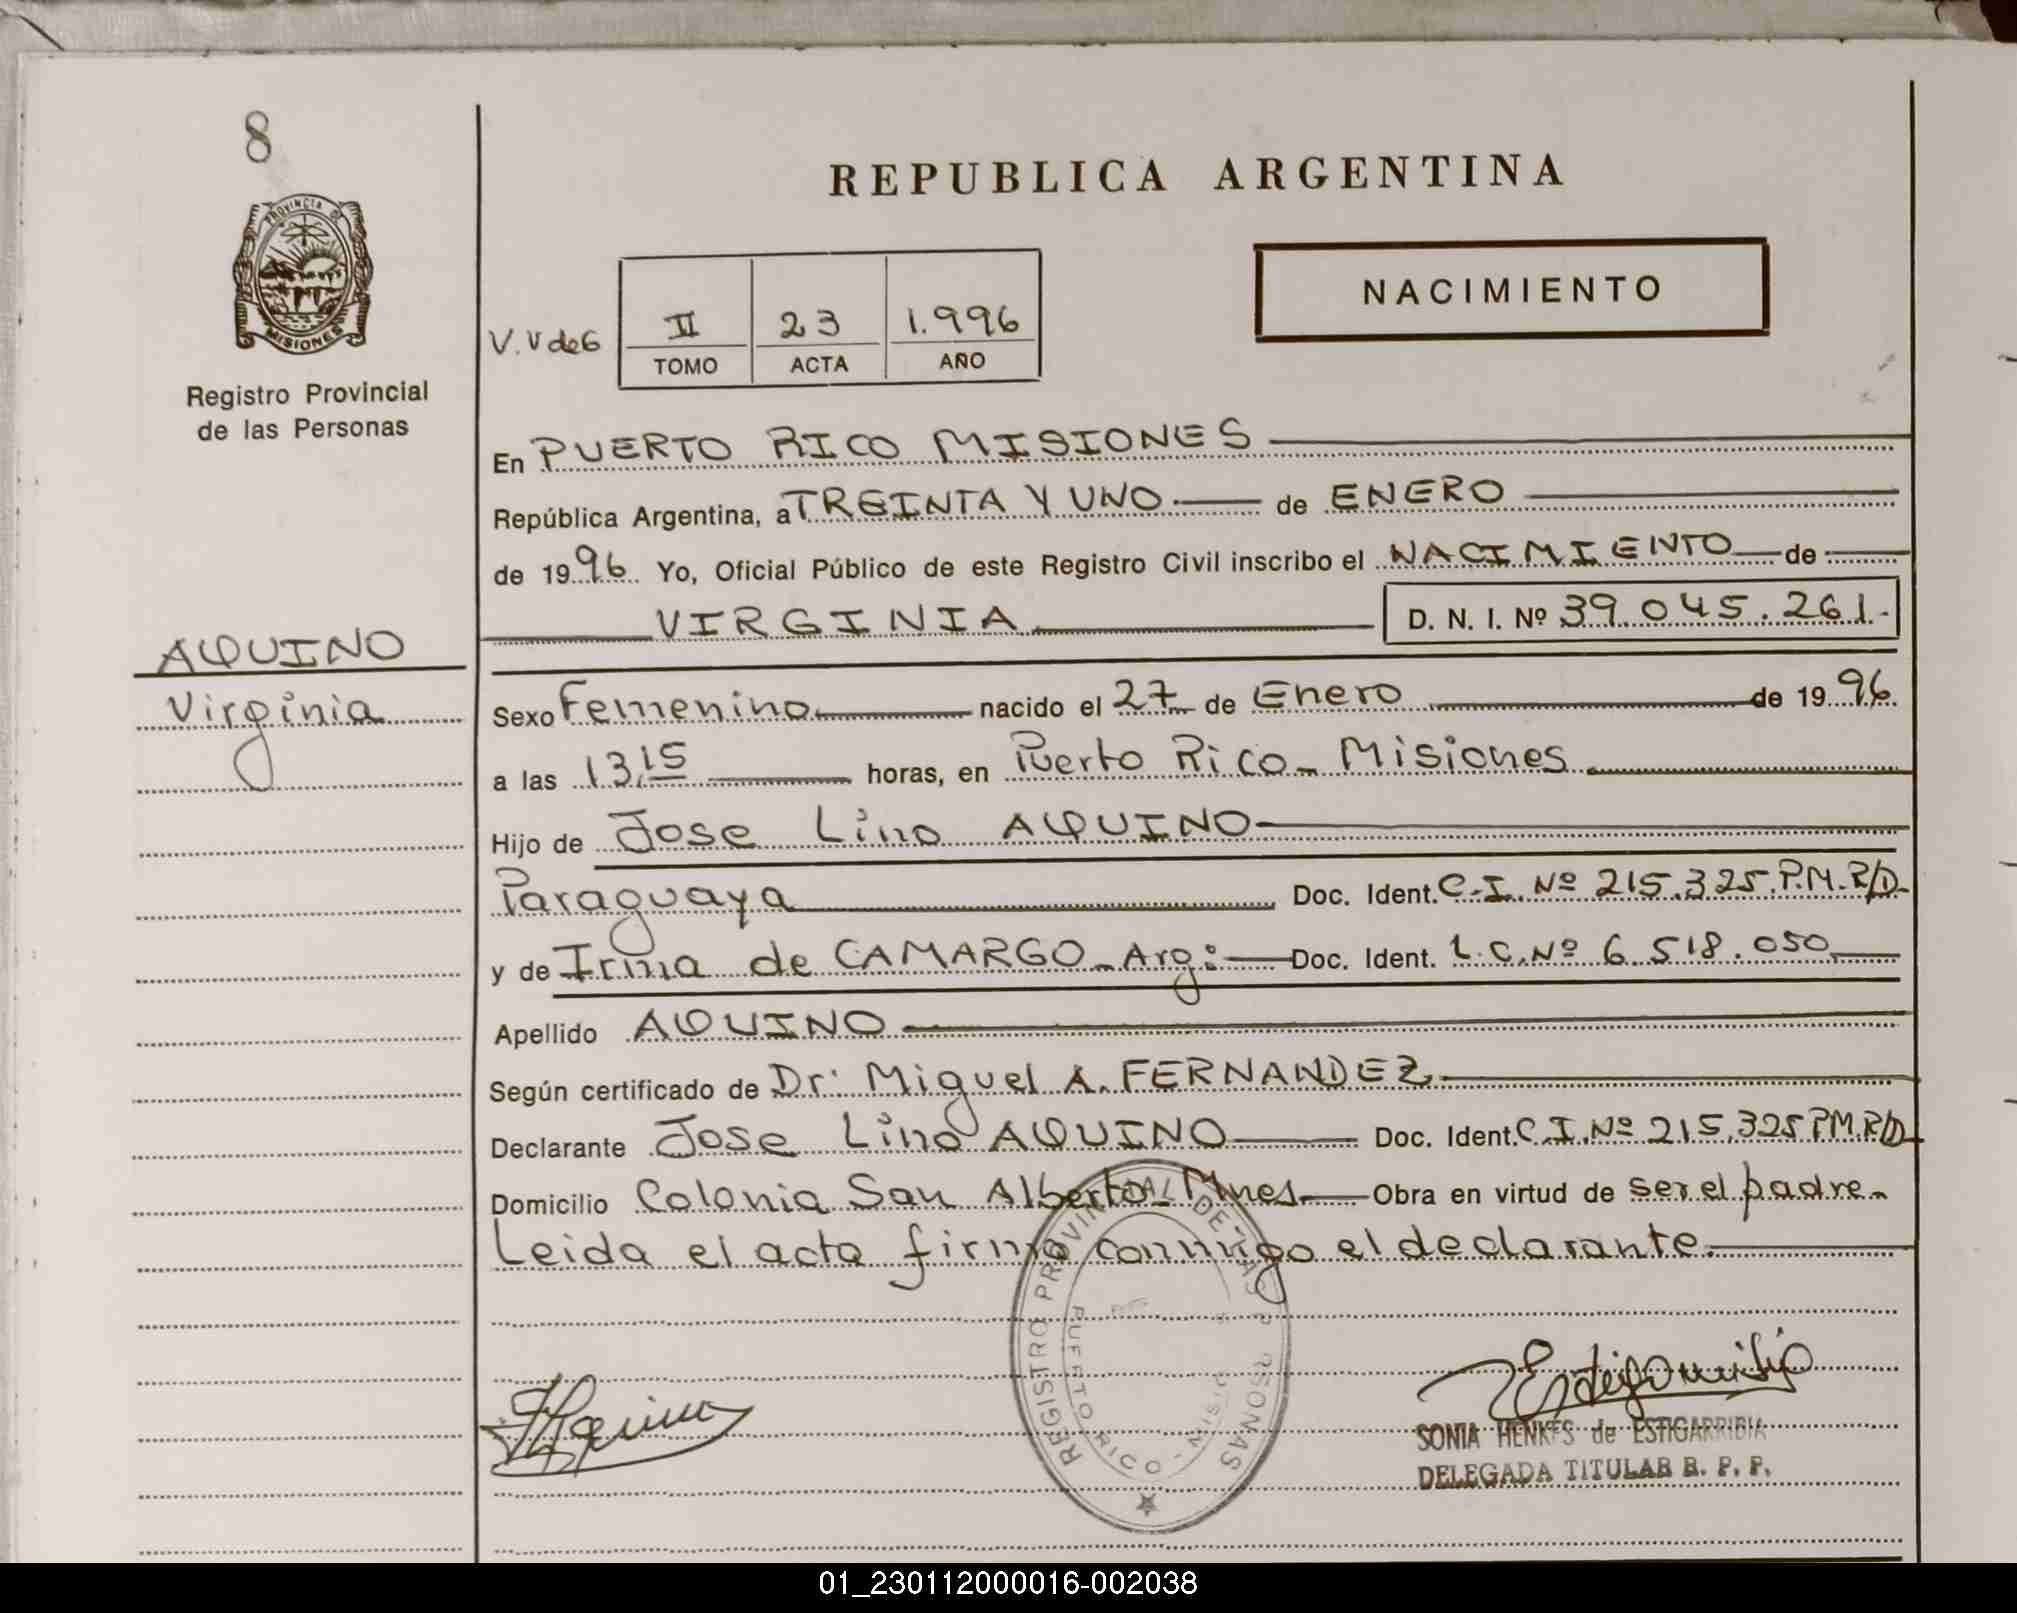 8
PROVINCIA DE
MISIONES
Registro Provincial
de las Personas
AQUINO
Virginia
REPUBLICA ARGENTINA
NACIMIENTO
V.V de G
II 23 1.996
TOMO ACTA AÑO
En PUERTO RICO MISIONES
República Argentina, a TREINTA Y UNO de ENERO
de 1996 Yo, Oficial Público de este Registro Civil inscribo el NACIMIENTO de
VIRGINIA D. N. I. Nº 39.045.261.-
Sexo Femenino nacido el 27 de Enero de 1996
a las 13,15 horas, en Puerto Rico - Misiones
Hijo de Jose Lino AQUINO
Paraguaya Doc. Ident. C.I. Nº 215.325.P.M.R/D-
y de Irma de CAMARGO - Arg: Doc. Ident. L.C.Nº 6.518.050
Apellido AQUINO
Según certificado de Dr: Miguel A. FERNANDEZ
Declarante Jose Lino AQUINO Doc. Ident. C.I.Nº 215.325 P.M.R/D
Domicilio Colonia San Alberto - Mnes Obra en virtud de ser el padre-
Leida el acta firma conmigo el declarante.
REGISTRO PROVINCIAL DE LAS PERSONAS
PUERTO RICO - MISIONES
SONIA HENKES de ESTIGARRIBIA
DELEGADA TITULAR R. P. P.
01_230112000016-002038